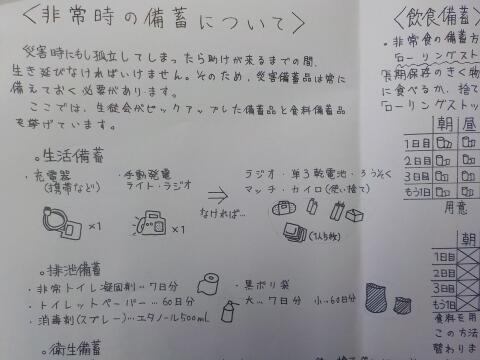 〈非常時の備蓄について〉
災害時にもし孤立してしまったら助けが来るまでの間、
生き延びなければいけません。そのため、災害備蓄品は常に
備えておく必要があります。
ここでは、生徒会がピックアップした備蓄品と食料備蓄品
を挙げています。
○生活備蓄
・充電器
(携帯など)
×1
・手動発電
ライト・ラジオ
×1
⇒
なければ…
ラジオ・単3乾電池・ろうそく
マッチ・カイロ(使い捨て)
(1人5枚)
○排泄備蓄
・非常トイレ凝固剤…7日分
・トイレットペーパー…60日分
・消毒剤(スプレー)…エタノール500mL
・黒ポリ袋
大…7日分 小…60日分
○衛生備蓄
〈飲食備蓄〉
・非常食の備蓄方
「ローリングスト
長期保存のきく物
に食べるか、捨て
「ローリングストッ
朝 昼
1日目
2日目
3日目
もう1日
用意
朝
1日目
2日目
3日目
もう1日
食料を用
この方法
替わりま